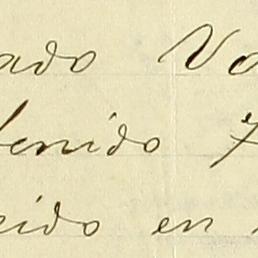 ado Va
tenido 7
cido en